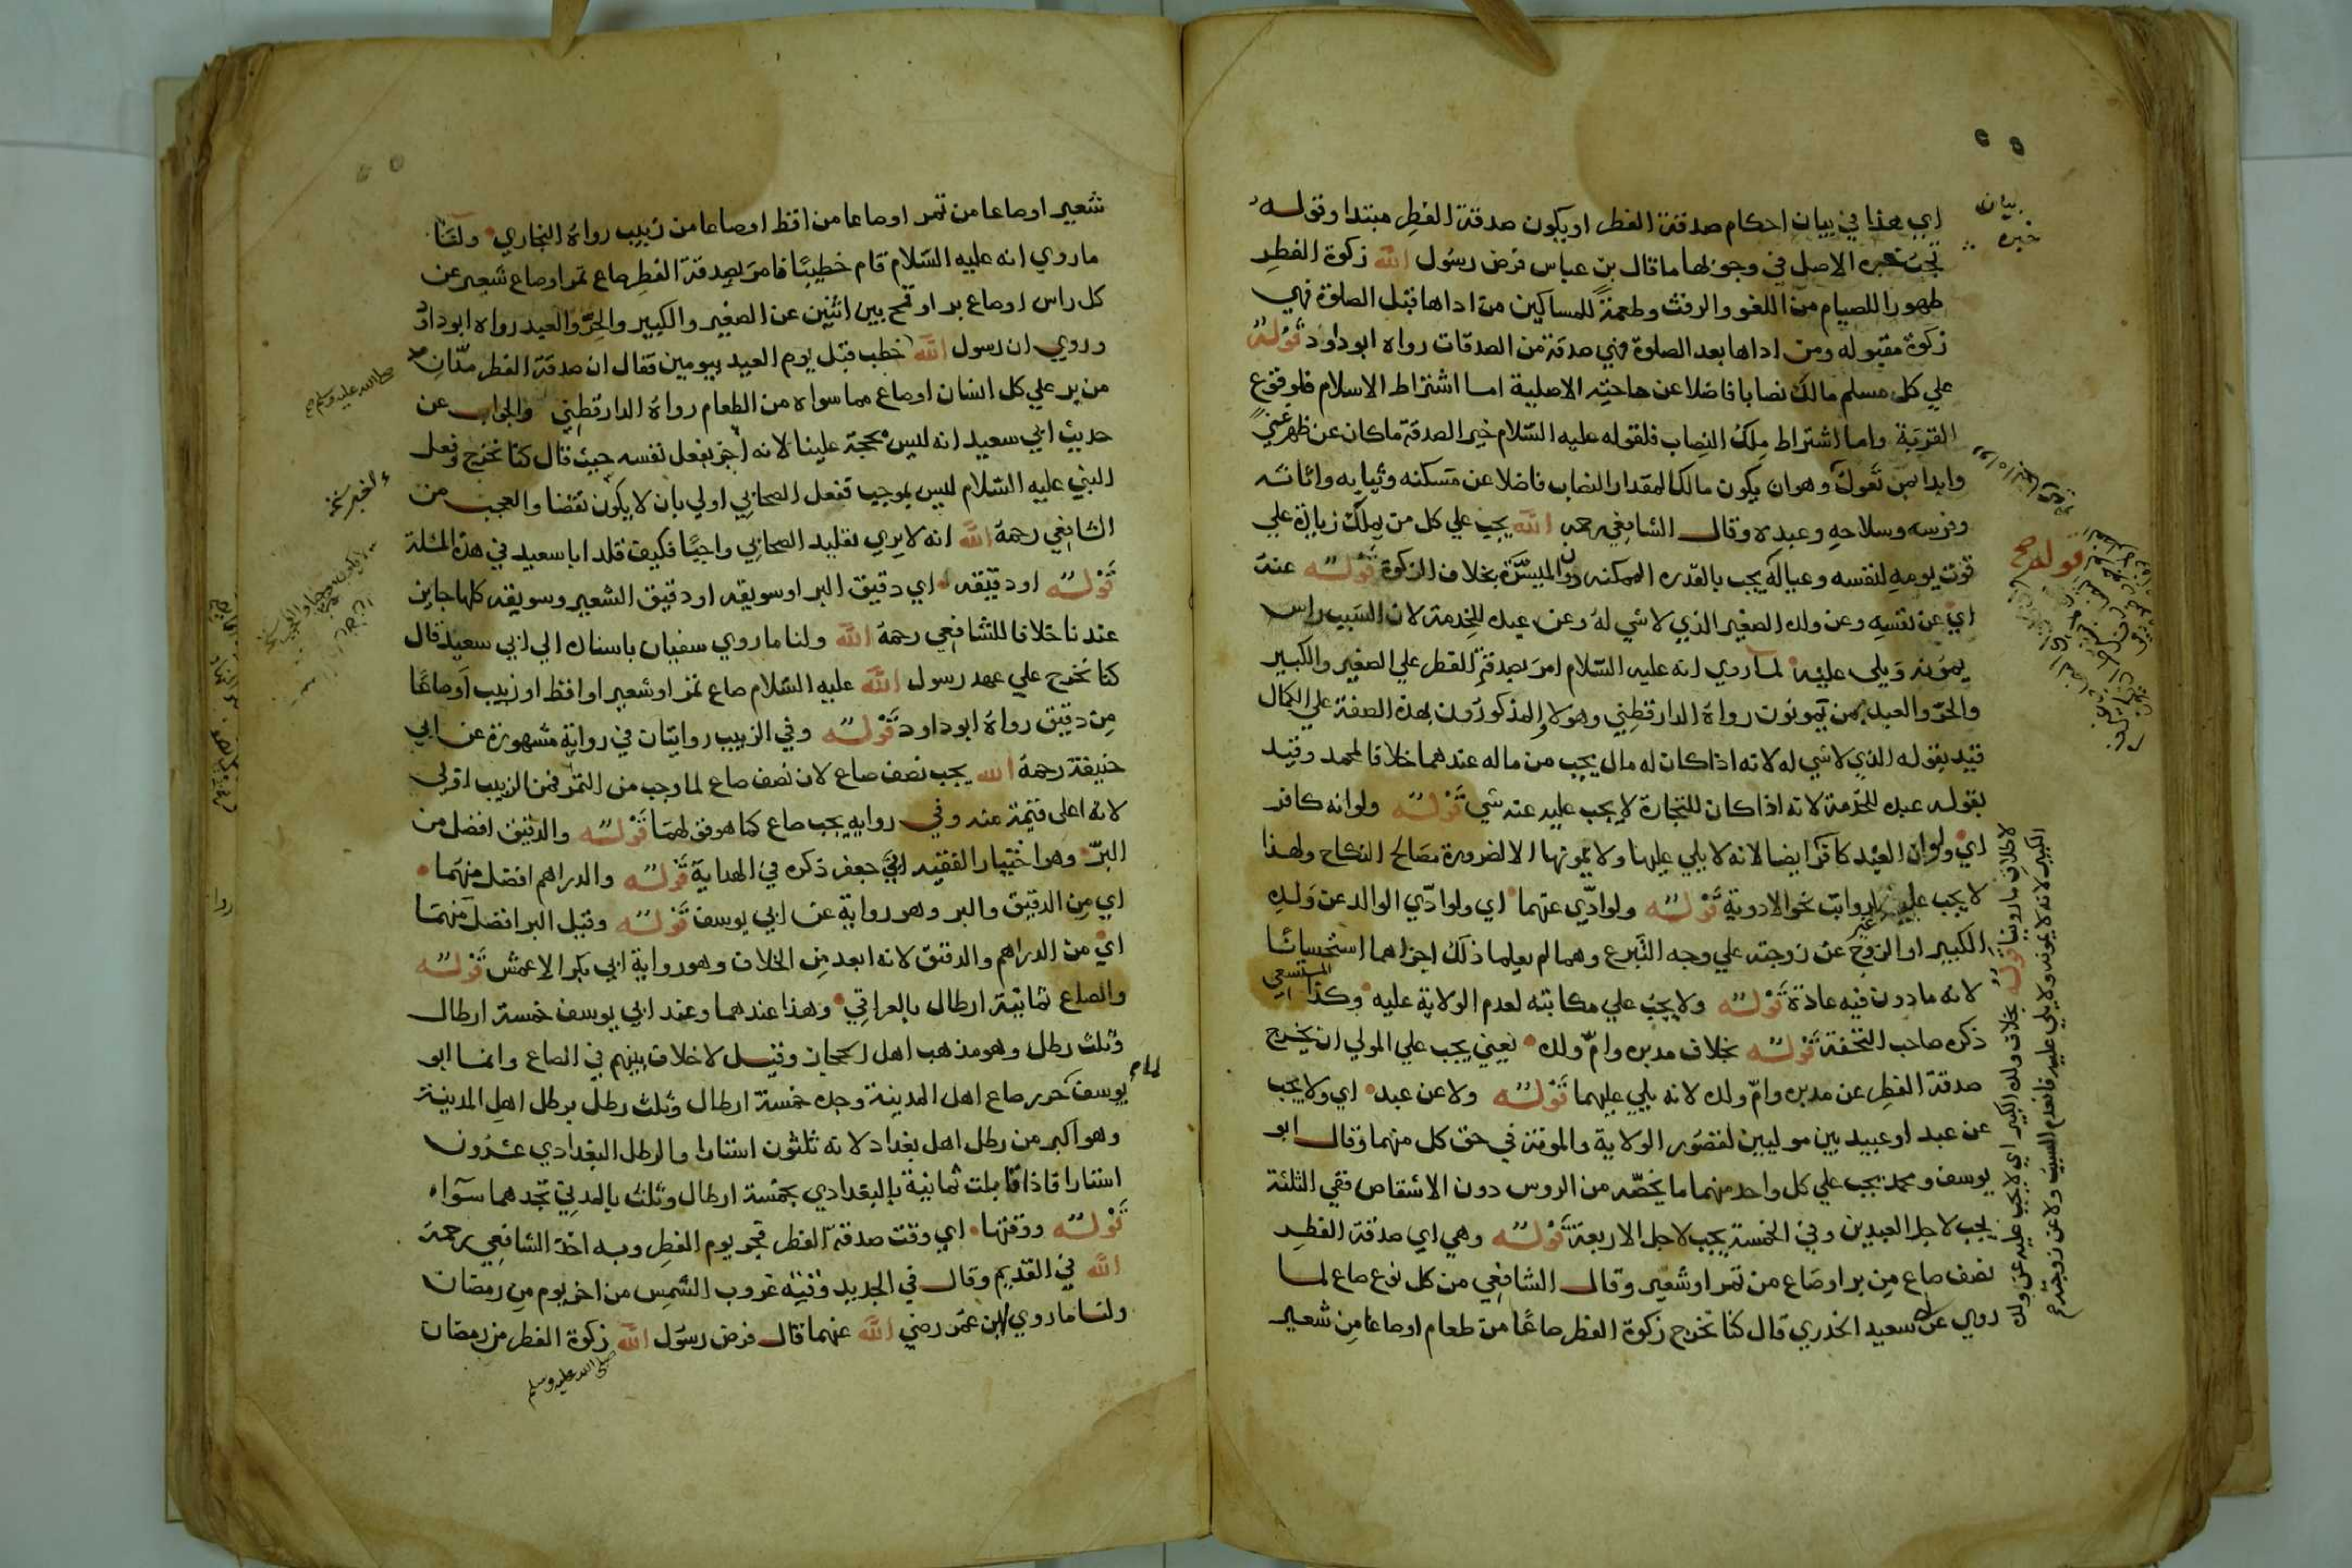 اي هذا في بيان احكام صدقة الفطر او يكون صدقة الفطر مبتدا وقوله
تجب خبره الاصل في وجوبها ما قال بن عباس فرض رسول الله زكوة الفطر
طهورا للصيام من اللغو والرفث وطعمة للمساكين من اداها قبل الصلوة فهي
زكوة مقبوله ومن اداها بعد الصلوة فهي صدقة من الصدقات رواه ابو داود قوله
علي كل مسلم مالك نصابا فاضلا عن حاجته الاصلية اما اشتراط الاسلام فلوقوع
القربة واما اشتراط ملك النصاب فلقوله عليه السلام خير الصدقة ماكان عن ظهر غني
وابدا بمن تعول وهو ان يكون مالكا لمقدار النصاب فاضلا عن مسكنه وثيابه واثاثه
وفرسه وسلاحه وعبده وقال الشافعي رحمه الله يجب علي كل من يملك زيادة علي
قوت يومه لنفسه وعياله يجب بالقدرة الممكنه دون الميسرة بخلاف الزكوة قوله عنه
اي عن نفسه وعن ولده الصغير الذي لا شي له وعن عبده للخدمة لان السبب راس
يمونه ويلي عليه لما روي انه عليه السلام امر بصدقة الفطر علي الصغير والكبير
والحر والعبد ممن تمونون رواه الدارقطني وهولاء المذكورون بهذه الصفة علي الكمال
قيد بقوله الذي لا شي له لانه اذا كان له مال يجب من ماله عندهما خلافا لمحمد وقيد
بقوله عبده للخدمة لانه اذا كان للتجارة لا يجب عليه عنه شي قوله ولو انه كافر
اي ولو ان العبد كافر ايضا لانه لا يلي عليها ولا يمونها الا لضرورة مصالح النكاح ولهذا
لا يجب عليه غير الرواتب نحو الادوية قوله ولو ادي عنهما اي ولو ادي الوالد عن ولده
الكبير او الزوج عن زوجته علي وجه التبرع وهما لم يعلما ذلك اجزاهما استحسانا
لانه مادون فيه عادة قوله ولا يجب علي مكاتبه لعدم الولاية عليه وكذا المستسعي
ذكره صاحب التحفة قوله بخلاف مدبره وام ولده يعني يجب علي المولي ان يخرج
صدقة الفطر عن مدبره وام ولده لانه يلي عليهما قوله ولا عن عبد اي ولا يجب
عن عبد او عبيد بين موليين لقصور الولاية والمونة في حق كل منهما وقال ابو
يوسف ومحمد يجب علي كل واحد منهما ما يخصه من الروس دون الاشقاص ففي الثلثة
يجب لاجل العبدين وفي الخمسة يجب لاجل الاربعة قوله وهي اي صدقة الفطر
نصف صاع من بر او صاع من تمر او شعير وقال الشافعي من كل نوع صاع لما
روي عن ابي سعيد الخدري قال كنا نخرج زكوة الفطر صاعا من طعام او صاعا من شعير
بيان
خبره
قوله صح
لا خلاف ما روينا قوله بخلاف ولده الكبير اي لا يجب عليه عن ولده
الكبير لانه لا يمونه ولا يلي عليه فانعدم السبب ولا عن زوجته صح
شعير او صاعا من تمر او صاعا من اقط او صاعا من زبيب رواه البخاري ولنا
ما روي انه عليه السلام قام خطيبا فامر بصدقة الفطر صاع تمر او صاع شعير عن
كل راس او صاع بر او قمح بين اثنين عن الصغير والكبير والحر والعبد رواه ابو داود
وروي ان رسول الله خطب قبل يوم العيد بيومين فقال ان صدقة الفطر مدان
من بر علي كل انسان او صاع مما سواه من الطعام رواه الدارقطني والجواب عن
حديث ابي سعيد انه ليس بحجة علينا لانه اخبر بفعل نفسه حيث قال كنا نخرج وفعل
النبي عليه السلام ليس بموجب ففعل الصحابي اولي بان لا يكون نقضا والعجب من
الشافعي رحمة الله انه لا يري تقليد الصحابي واجبا فكيف قلد ابا سعيد في هذه المثلة
قوله او دقيقه اي دقيق البر او سويقه او دقيق الشعير وسويقه كلها جاين
عندنا خلافا للشافعي رحمة الله ولنا ما روي سفيان باسناده الي ابي سعيد قال
كنا نخرج علي عهد رسول الله عليه السلام صاع تمر او شعير او اقط او زبيب او صاعا
من دقيق رواه ابو داود قوله وفي الزبيب روايتان في رواية مشهورة عن ابي
حنيفة رحمة الله يجب نصف صاع لان نصف صاع لما وجب من التمر فمن الزبيب اولي
لانه اعلى قيمة منه وفي رواية يجب صاع كما هو قولهما قوله والدقيق افضل من
البر وهو اختيار الفقيه ابي جعفر ذكره في الهداية قوله والدراهم افضل منهما
اي من الدقيق والبر وهو رواية عن ابي يوسف قوله وقيل البر افضل منهما
اي من الدراهم والدقيق لانه ابعد من الخلاف وهو رواية ابي بكر الاعمش قوله
والصاع ثمانية ارطال بالعراقي وهذا عندهما وعند ابي يوسف خمسة ارطال
وثلث رطل وهو مذهب اهل الحجاز وقيل لا خلاف بينهم في الصاع وانما ابو
يوسف لما حرر صاع اهل المدينة وجده خمسة ارطال وثلث رطل برطل اهل المدينة
وهو اكبر من رطل اهل بغداد لانه ثلثون استارا والرطل البغدادي عشرون
استارا فاذا قابلت ثمانية بالبغدادي بخمسة ارطال وثلث بالمدني تجدهما سواء
قوله ووقتها اي وقت صدقة الفطر فجر يوم الفطر وبه اخذ الشافعي رحمة
الله في القديم وقال في الجديد وقته غروب الشمس من اخر يوم من رمضان
ولنا ما روي ابن عمر رضي الله عنهما قال فرض رسول الله زكوة الفطر من رمضان
صلى الله عليه وسلم
صلى الله عليه وسلم صح
اخبر نخ